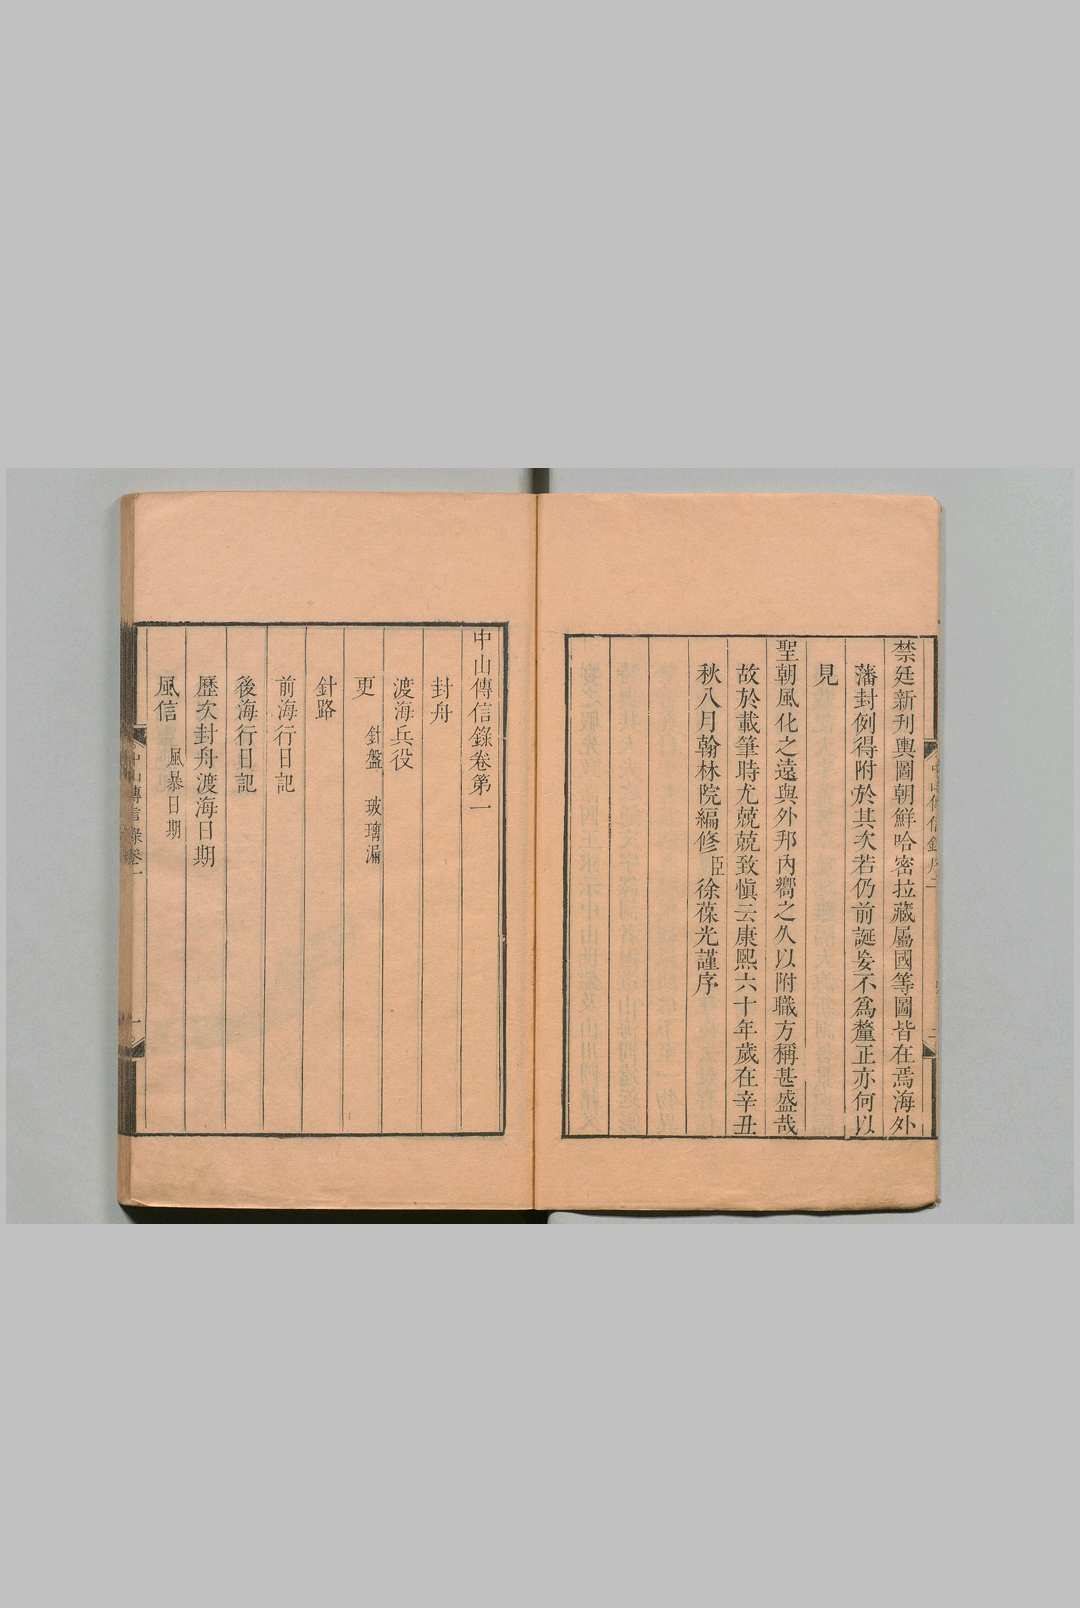 禁廷新刋輿圖朝鮮哈密拉藏屬國等圖皆在焉海外
藩封例得附於其次若仍前誕妄不爲釐正亦何以
見
聖朝風化之遠與外邦內嚮之久以附職方稱甚盛哉
故於載筆時尤兢兢致愼云康熙六十年歲在辛丑
秋八月翰林院編修臣徐葆光謹序
中山傳信錄序二
中山傳信錄卷第一
封舟
渡海兵役
更 針盤 玻璃漏
針路
前海行日記
後海行日記
歷次封舟渡海日期
風信 風暴日期
中山傳信錄卷一
一